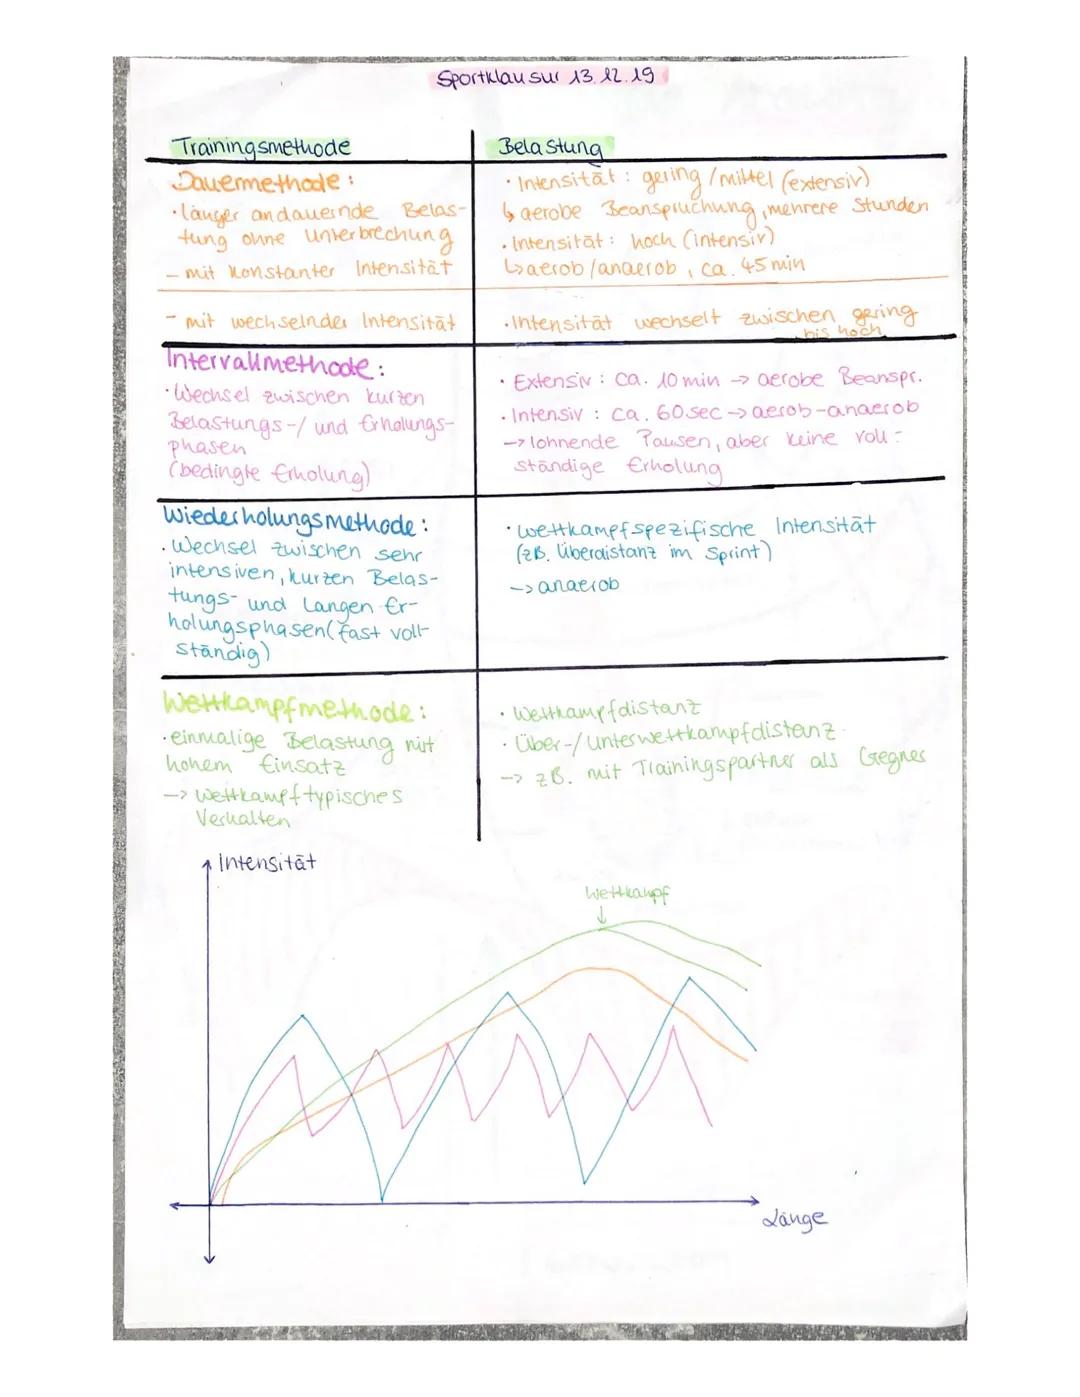 Sportklausur 13.12.19
Trainingsmethode
Belastung
Dauermethode:
· länger andauernde Belas-
tung ohne Unterbrechung
- mit konstanter Intensität
· Intensität: gering/mittel (extensiv)
↳ aerobe Beanspruchung, mehrere Stunden
· Intensität: hoch (intensiv)
↳ aerob/anaerob, ca. 45 min
- mit wechselnder Intensität
· Intensität wechselt zwischen gering
bis hoch
Intervallmethode:
· Wechsel zwischen kurzen
Belastungs-/ und Erholungs-
phasen
(bedingte Erholung)
· Extensiv: ca. 10 min → aerobe Beanspr.
· Intensiv: ca. 60 sec → aerob-anaerob
→ lohnende Pausen, aber keine voll-
ständige Erholung
Wiederholungsmethode:
· Wechsel zwischen sehr
intensiven, kurzen Belas-
tungs- und Langen Er-
holungsphasen (fast voll-
ständig)
· wettkampfspezifische Intensität
(zB. Überdistanz im Sprint)
→ anaerob
Wettkampfmethode:
· einmalige Belastung mit
hohem Einsatz
→ wettkampftypisches
Verhalten
· Wettkampfdistanz
· Über-/Unterwettkampfdistanz
→ zB. mit Trainingspartner als Gegner
Intensität
Wettkampf
Länge